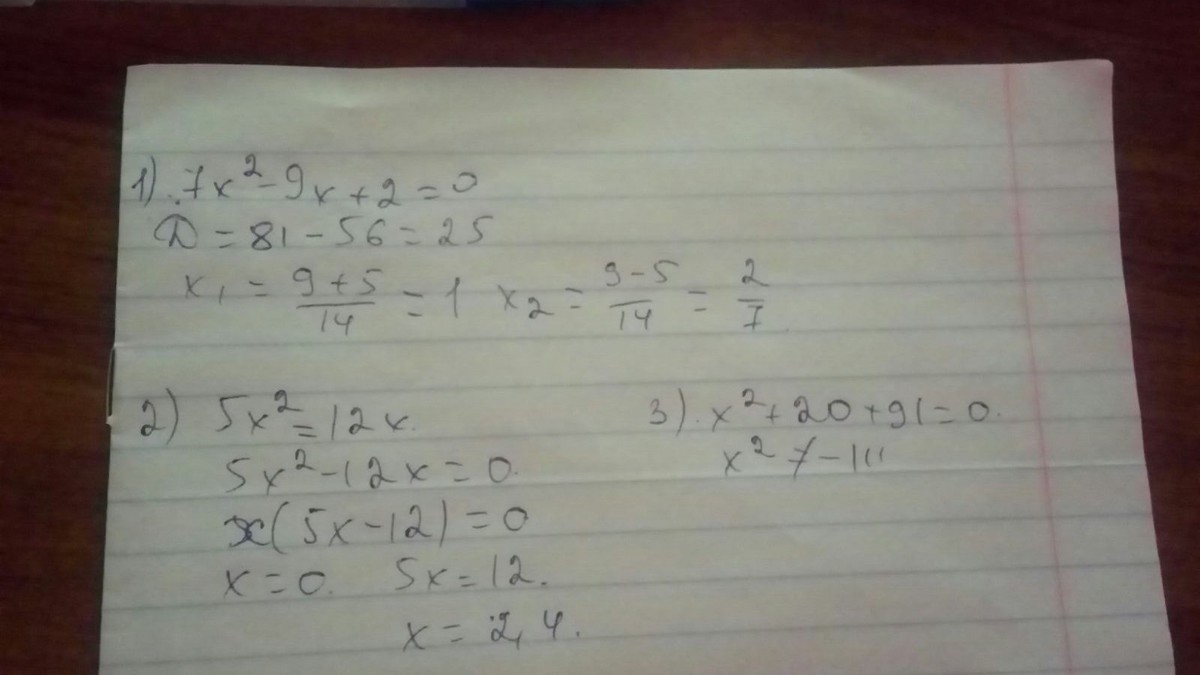 1) 7x² - 9x + 2 = 0
D = 81 - 56 = 25
x₁ = (9 + 5)/14 = 1 x₂ = (9 - 5)/14 = 2/7
2) 5x² = 12x.
5x² - 12x = 0.
x(5x - 12) = 0
x = 0. 5x = 12.
x = 2,4.
3) x² + 20 + 91 = 0.
x² ≠ -111